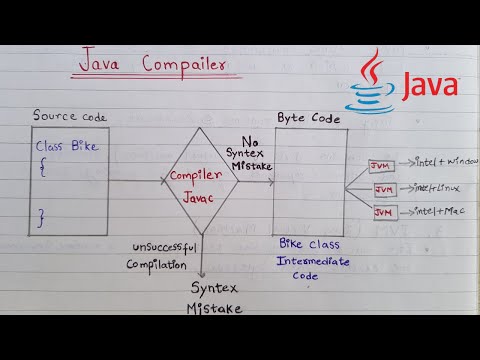 Java Compailer
Java
Source code
Class Bike
{
}
Compiler
Javac
No
Syntex
Mistake
unsuccessful
Compilation
Syntex
Mistake
Byte Code
Bike class
Intermediate
Code
JVM
intel+window
JVM
JVM
intel+Mac